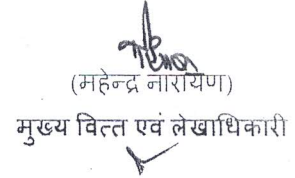 (महेन्द्र नारायण)
मुख्य वित्त एवं लेखाधिकारी